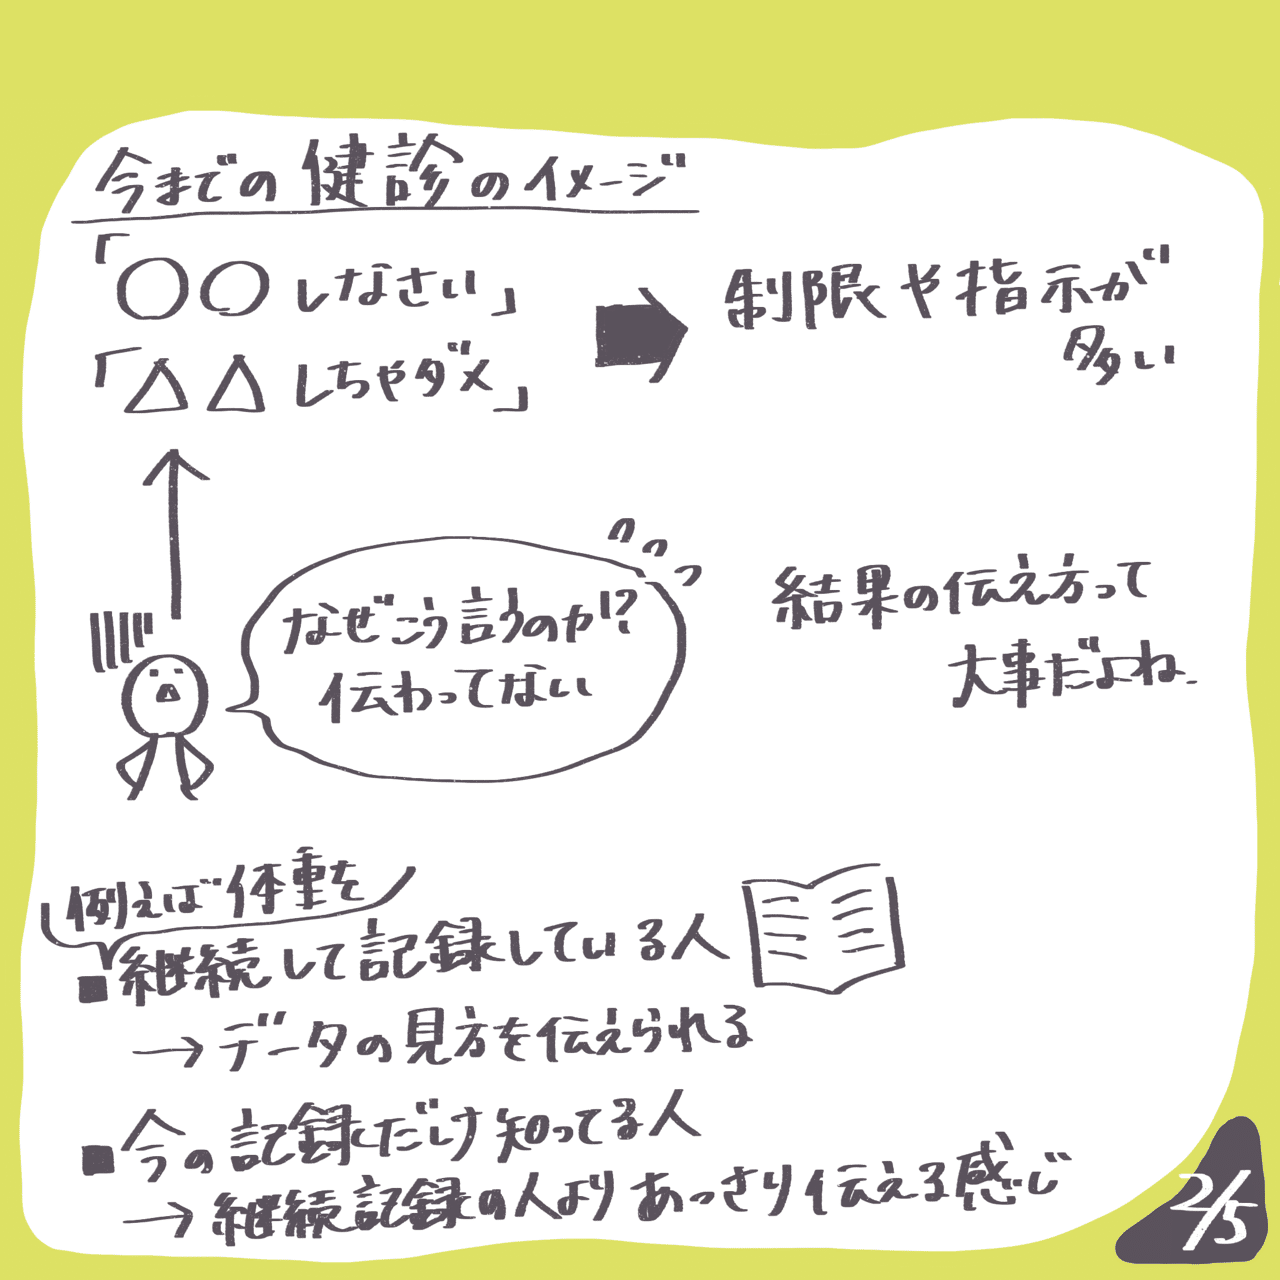 今までの健診のイメージ
「〇〇しなさい」
「△△しちゃダメ」
制限や指示が
多い
なぜこう言うのか!?
伝わってない
結果の伝え方って
大事だよね.
例えば体重を
■継続して記録している人
→データの見方を伝えられる
■今の記録だけ知ってる人
→継続記録の人よりあっさり伝える感じ
2/5